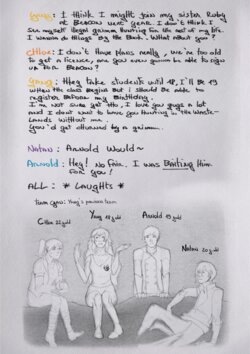 Yang: I think I might join my sister Ruby
at Beacon next year. I don't think I
see myself illegal grimm hunting for the rest of my life.
I wanna do things by the book. What about you?
Chloe: I don't have plans really. We're too old
to get a licence, are you even gonna be able to sign
up for Beacon?
Yang: They take students until 18, I'll be 19
when the class begins but I should be able to
register before my birthday.
I'm not sure yet tho, I love you guys a lot
and I don't want to leave you hunting in the waste-
lands without me.
You'd get attacked by a grimm.
Natan: Arnold would~
Arnold: Hey! No fair. I was baiting him
for you!
All: *laughts*
Team CYAN: Yang's previous team
Chloe 22 y old
Yang 18 y old
Arnold 19 y old
Natan 20 y old